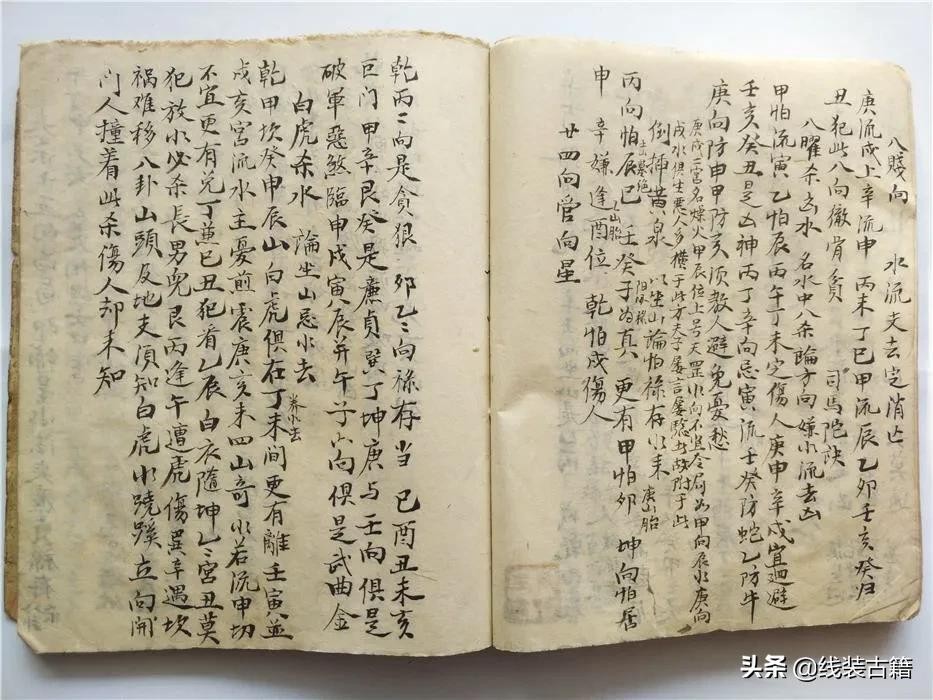 八贱向　水流支去定消亡
庚流戌上辛流申　丙未丁巳甲流辰乙卯壬亥癸归
丑犯此八向徹骨貧　司馬陀诀
八曜杀忌水　名水中八杀論方向嫌水流去凶
甲怕流寅　乙怕辰丙午丁未定傷人庚申辛戌宜廻避
壬亥癸丑是凶神丙丁辛向忌寅流壬癸防蛇乙防牛
庚向防申甲防亥须教人避免憂愁
庚戌二宮名燥火甲辰位上号天罡水向不出令局如甲向辰水庚向
戌水俱生悪人多横于此方夫子屡言屡騐故附于此
倒挿黄泉　以坐山論怕禄存水来　庚山胎
丙向怕辰巳　壬癸子为真　更有甲怕卯　坤向怕居
土墓绝　山胎
申　辛嫌逢酉位　乾怕戍傷人
廿四向管向星
乾丙二向是貪狼　卯乙二向禄存当　巳酉丑未亥
巨门甲辛艮癸是廉貞巽丁坤庚与壬向俱是
破軍惡煞臨申戌寅辰并午子六向俱是武曲金
白虎杀水　論坐山忌水去
乾甲坎癸申辰山白虎俱在丁未間更有離壬寅並
养水去
戍亥宮流水主憂煎震庚亥未四山奇水若流申切
不宜更有兑丁並巳丑犯着乙辰白衣隨坤乙二宮丑莫
犯放水必杀長男兒艮丙逢午遭虎傷巽辛遇坎
祸难移八卦山頭及地支須知白虎水蹺蹊立向開
门人撞着此杀傷人却未知
头条 @线装古籍